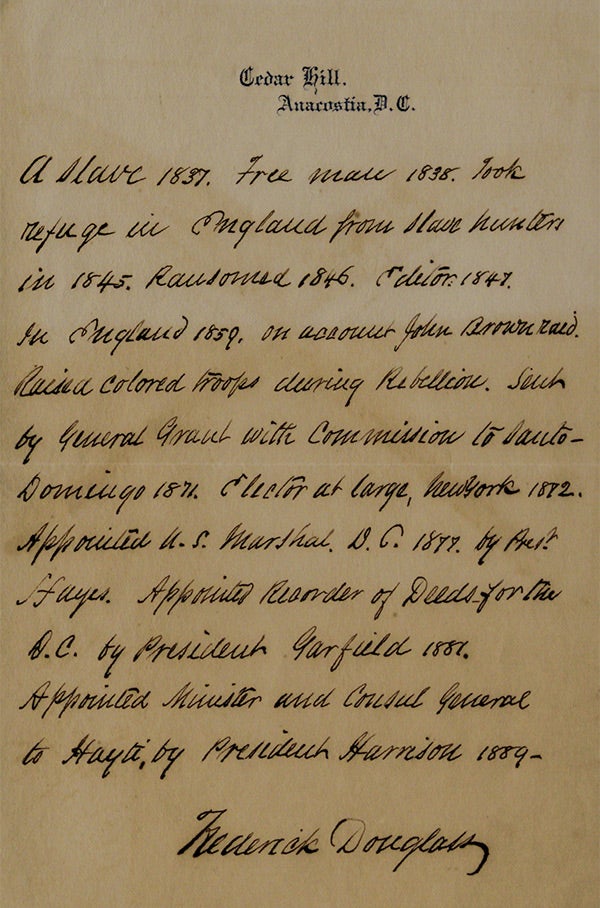 Cedar Hill.
Anacostia, D.C.
A slave 1837. Free man 1838. Took
refuge in England from slave hunters
in 1845. Ransomed 1846. Editor 1847.
In England 1859. on account John Brown raid.
Raised colored troops during Rebellion. Sent
by General Grant with Commission to Santo-
Domingo 1871. Elector at large, New York 1872.
Appointed U.S. Marshal. D.C. 1877. by Prest
Hayes. Appointed Recorder of Deeds for the
D.C. by President Garfield 1881.
Appointed Minister and Consul General
to Hayti, by President Harrison 1889-
Frederick Douglass